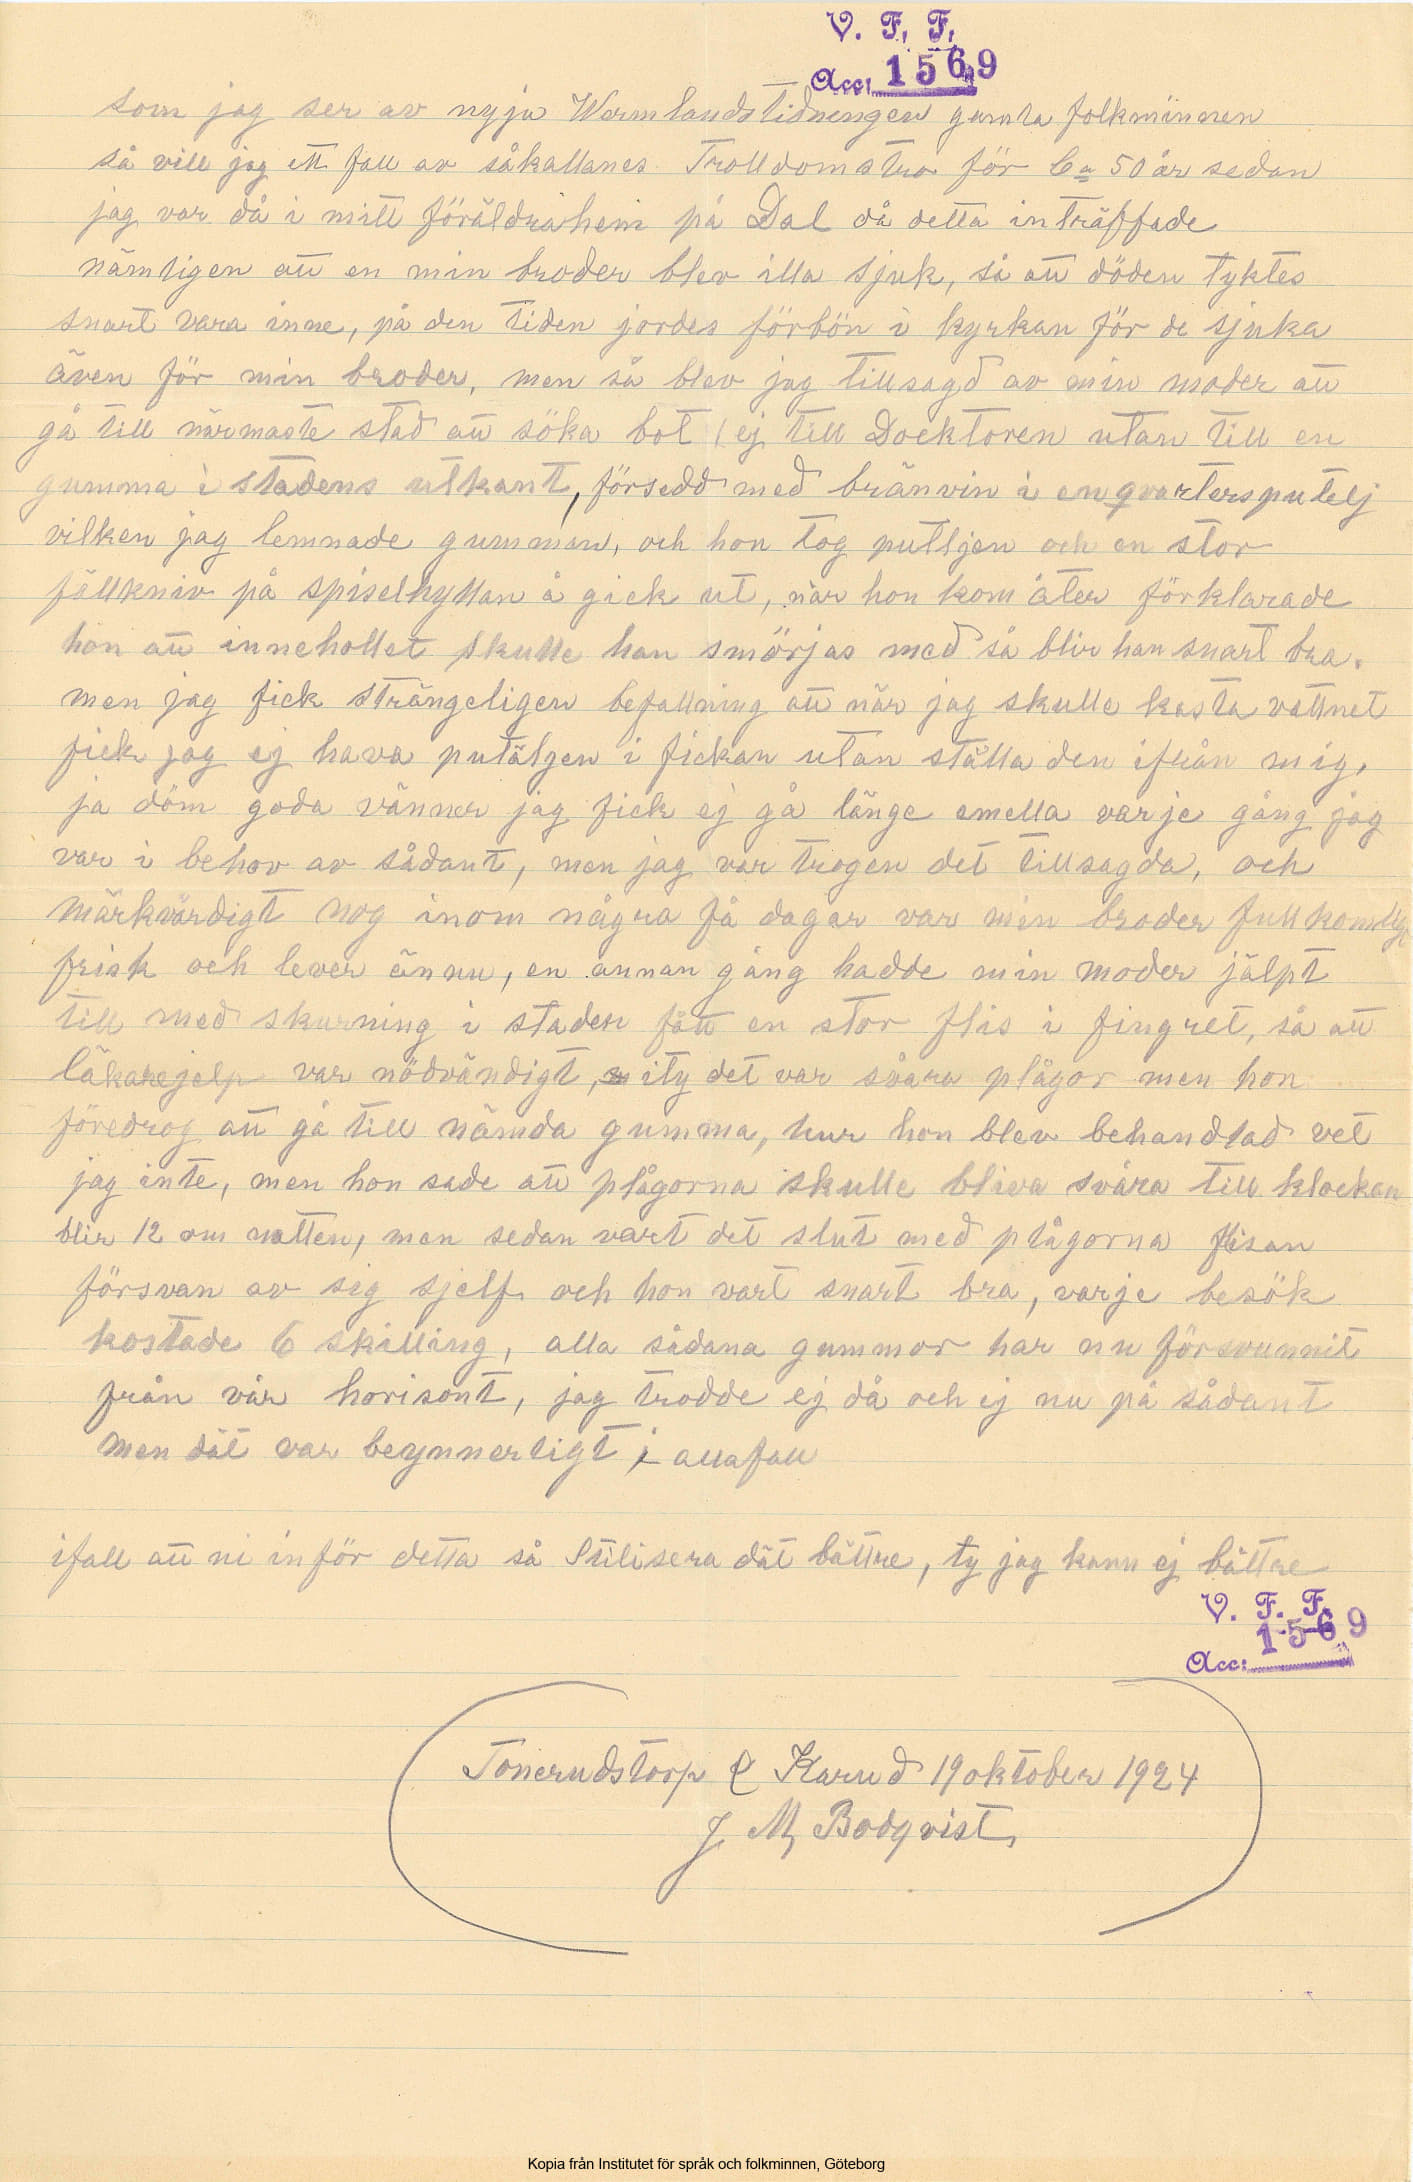 V. F. F.
Acc: 1569
som jag ser av nyja Wermlandstidningen gamla folkminnen
så vill jag ett fall av såkallanes Trolldomstro för Ca 50 år sedan
jag var då i mitt föräldrahem på Dal då detta inträffade
nämligen att en min broder blev illa sjuk, så att döden tyktes
snart vara inne, på den tiden jordes förbön i kyrkan för de sjuka
även för min broder, men så blev jag tillsagd av min moder att
gå till närmaste stad att söka bot (ej till Docktoren utan till en
gumma i stadens utkant, försedd med bränvin i en qvartersputelj
vilken jag lemnade gumman, och hon tog putljen och en stor
fällkniv på spiselhyllan å gick ut, när hon kom åter förklarade
hon att innehollet skulle han smörjas med så blir han snart bra.
men jag fick strängeligen befallning att när jag skulle kasta vattnet
fick jag ej hava putäljen i fickan utan ställa den ifrån mig,
ja döm goda vänner jag fick ej gå länge emella varje gång jag
var i behov av sådant, men jag var trogen det tillsagda, och
märkvärdigt nog inom några få dagar var min broder fullkomlig
frisk och lever ännu, en annan gång hadde min moder jälpt
till med skurning i staden fått en stor flis i fingret, så att
läkarejelp var nödvändigt, ity det var svåra plågor men hon
föredrog att gå till nämda gumma, hur hon blev behandlad vet
jag inte, men hon sade att plågorna skulle bliva svåra till klockan
blir 12 om natten, men sedan vart det slut med plågorna flisan
försvan av sig sjelf och hon vart snart bra, varje besök
kostade 6 skilling, alla sådana gummor har nu försvunnit
från vår horisont, jag trodde ej då och ej nu på sådant
men dät var beynnerligt i allafall
ifall att ni inför detta så Stilisera dät bättre, ty jag kann ej bättre
V. F. F.
1569
Acc:
Tonerudstorp & Karud 19 oktober 1924
J M Bodqvist,
Kopia från Institutet för språk och folkminnen, Göteborg